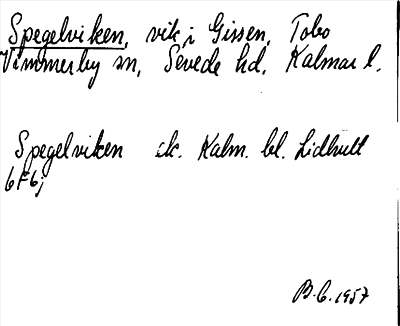 Spegelviken, vik i Gissen, Tobo
Vimmerby sn, Sevede hd, Kalmar l.
Spegelviken ek. Kalm. bl. Lidhult
6F6j
B.G.1957